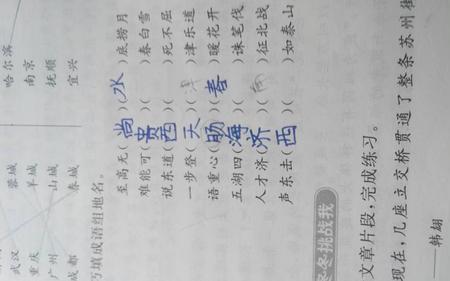 武汉 蓉城 哈尔滨
重庆 羊城 南京
广州 山城 抚顺
成都 春城 宜兴
巧填成语组地名。
至高无(尚)(水)底捞月
难能可(贵)( )春白雪
说东道(西)( )死不屈
一步登(天)( )津乐道
语重心(肠)(春)暖花开
五湖四(海)( )诛笔伐
人才济(济)( )征北战
声东击(西)( )如泰山
冬挑战我
文章片段，完成练习。
现在，几座立交桥贯通了整条苏州
——韩翃